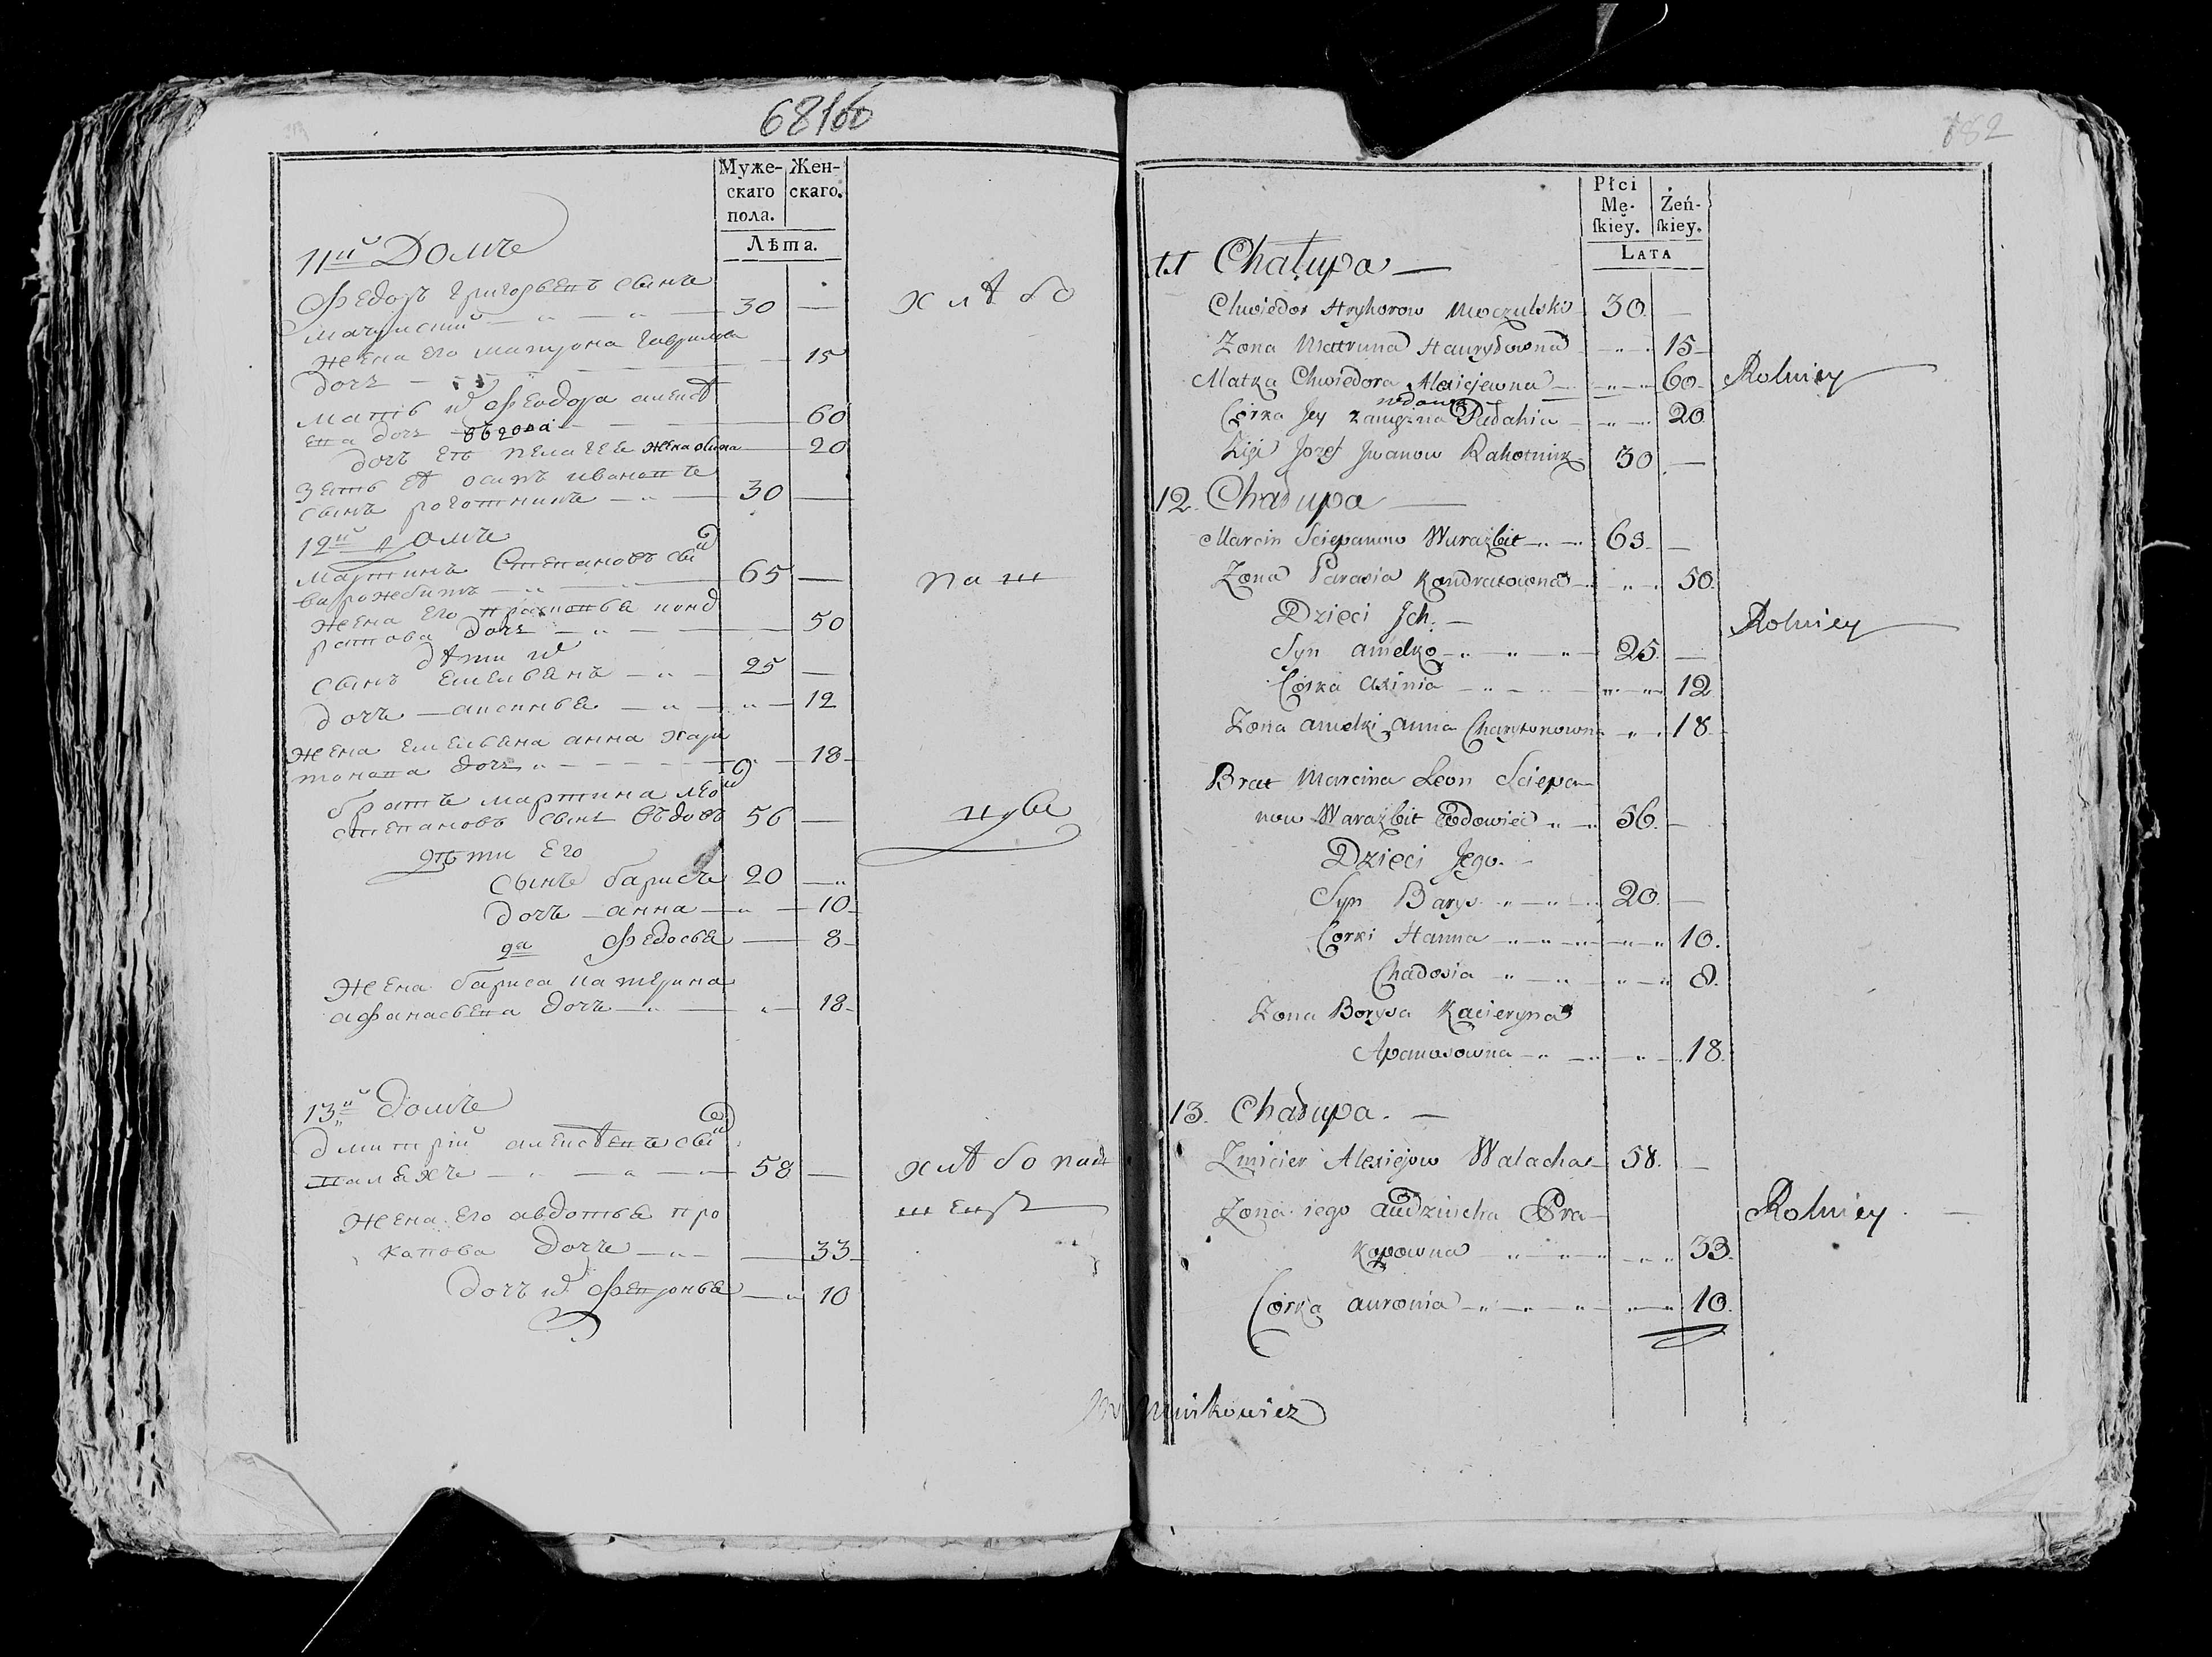 68160
Муже-
скаго
пола.
Жен-
скаго.
Лѣта.
11й Домъ
Федоръ Григорьевъ сынъ
Мачулский 30 —
хлѣбо
жена его матрона гаврилова
дочь — 15
мать их Феодора алексѣ
ева дочь вдова 60
дочь ее пелагея жена осипа 20
зять ее осипъ ивановъ
сынъ роготникъ 30 —
12й домъ
Мартинъ Степановъ сын
варожбитъ 65 —
паш
жена его прасковья конд
ратова дочь 50
дѣти их
сынъ емельянъ 25 —
дочь аксинья 12
жена емельяна анна хари
тонова дочь 18
братъ мартина лео
степановъ сынъ вдовъ 56 —
цы
дѣти Его
сынъ барисъ 20 —
дочь анна — 10
да Федосья — 8
жена бариса катерина
афанасьева дочь 18
13й домъ
дмитрій алексѣевъ сын
валахъ 58 —
хлѣбопаш
жена его авдотья про
капова дочь 33
дочь их февронья 10
182
Płci
Mę-
skiey.
Żeń-
skiey.
Lata
11 Chałupa —
Chwiedor Hryhorow Moczulski 30 —
Zona Matruna Hauryłowna 15
Matka Chwiedora Alexiejewna 60
Rolnicy
Corka Jey zamężna Pałahia 20
Zięć Jozef Jwanow Rahotnik 30 —
12. Chałupa —
Marcin Sciepanow Warażbit 65 —
Zona Parasia Kondratowna 50.
Dzieci Jch. —
Rolnicy
Syn Amelko 25. —
Corka Axinia 12
Zona Amelki Anna Charytonowna 18.
Brat Marcina Leon Sciepa-
now Warażbit Wdowiec 56. —
Dzieci Jego. —
Syn Barys 20. —
Corki Hanna 10.
Chadosia 8.
Zona Borysa Kacieryna
Apanasowna 18.
13. Chałupa. —
Zmicier Alexiejow Walacha 58. —
Zona iego Audziucha Pra-
Rolnicy. —
kopowna 33.
Corka Auronia 10.